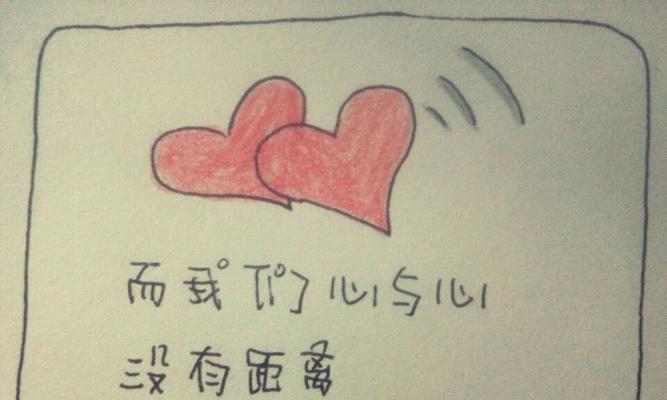 而我们心与心
没有距离